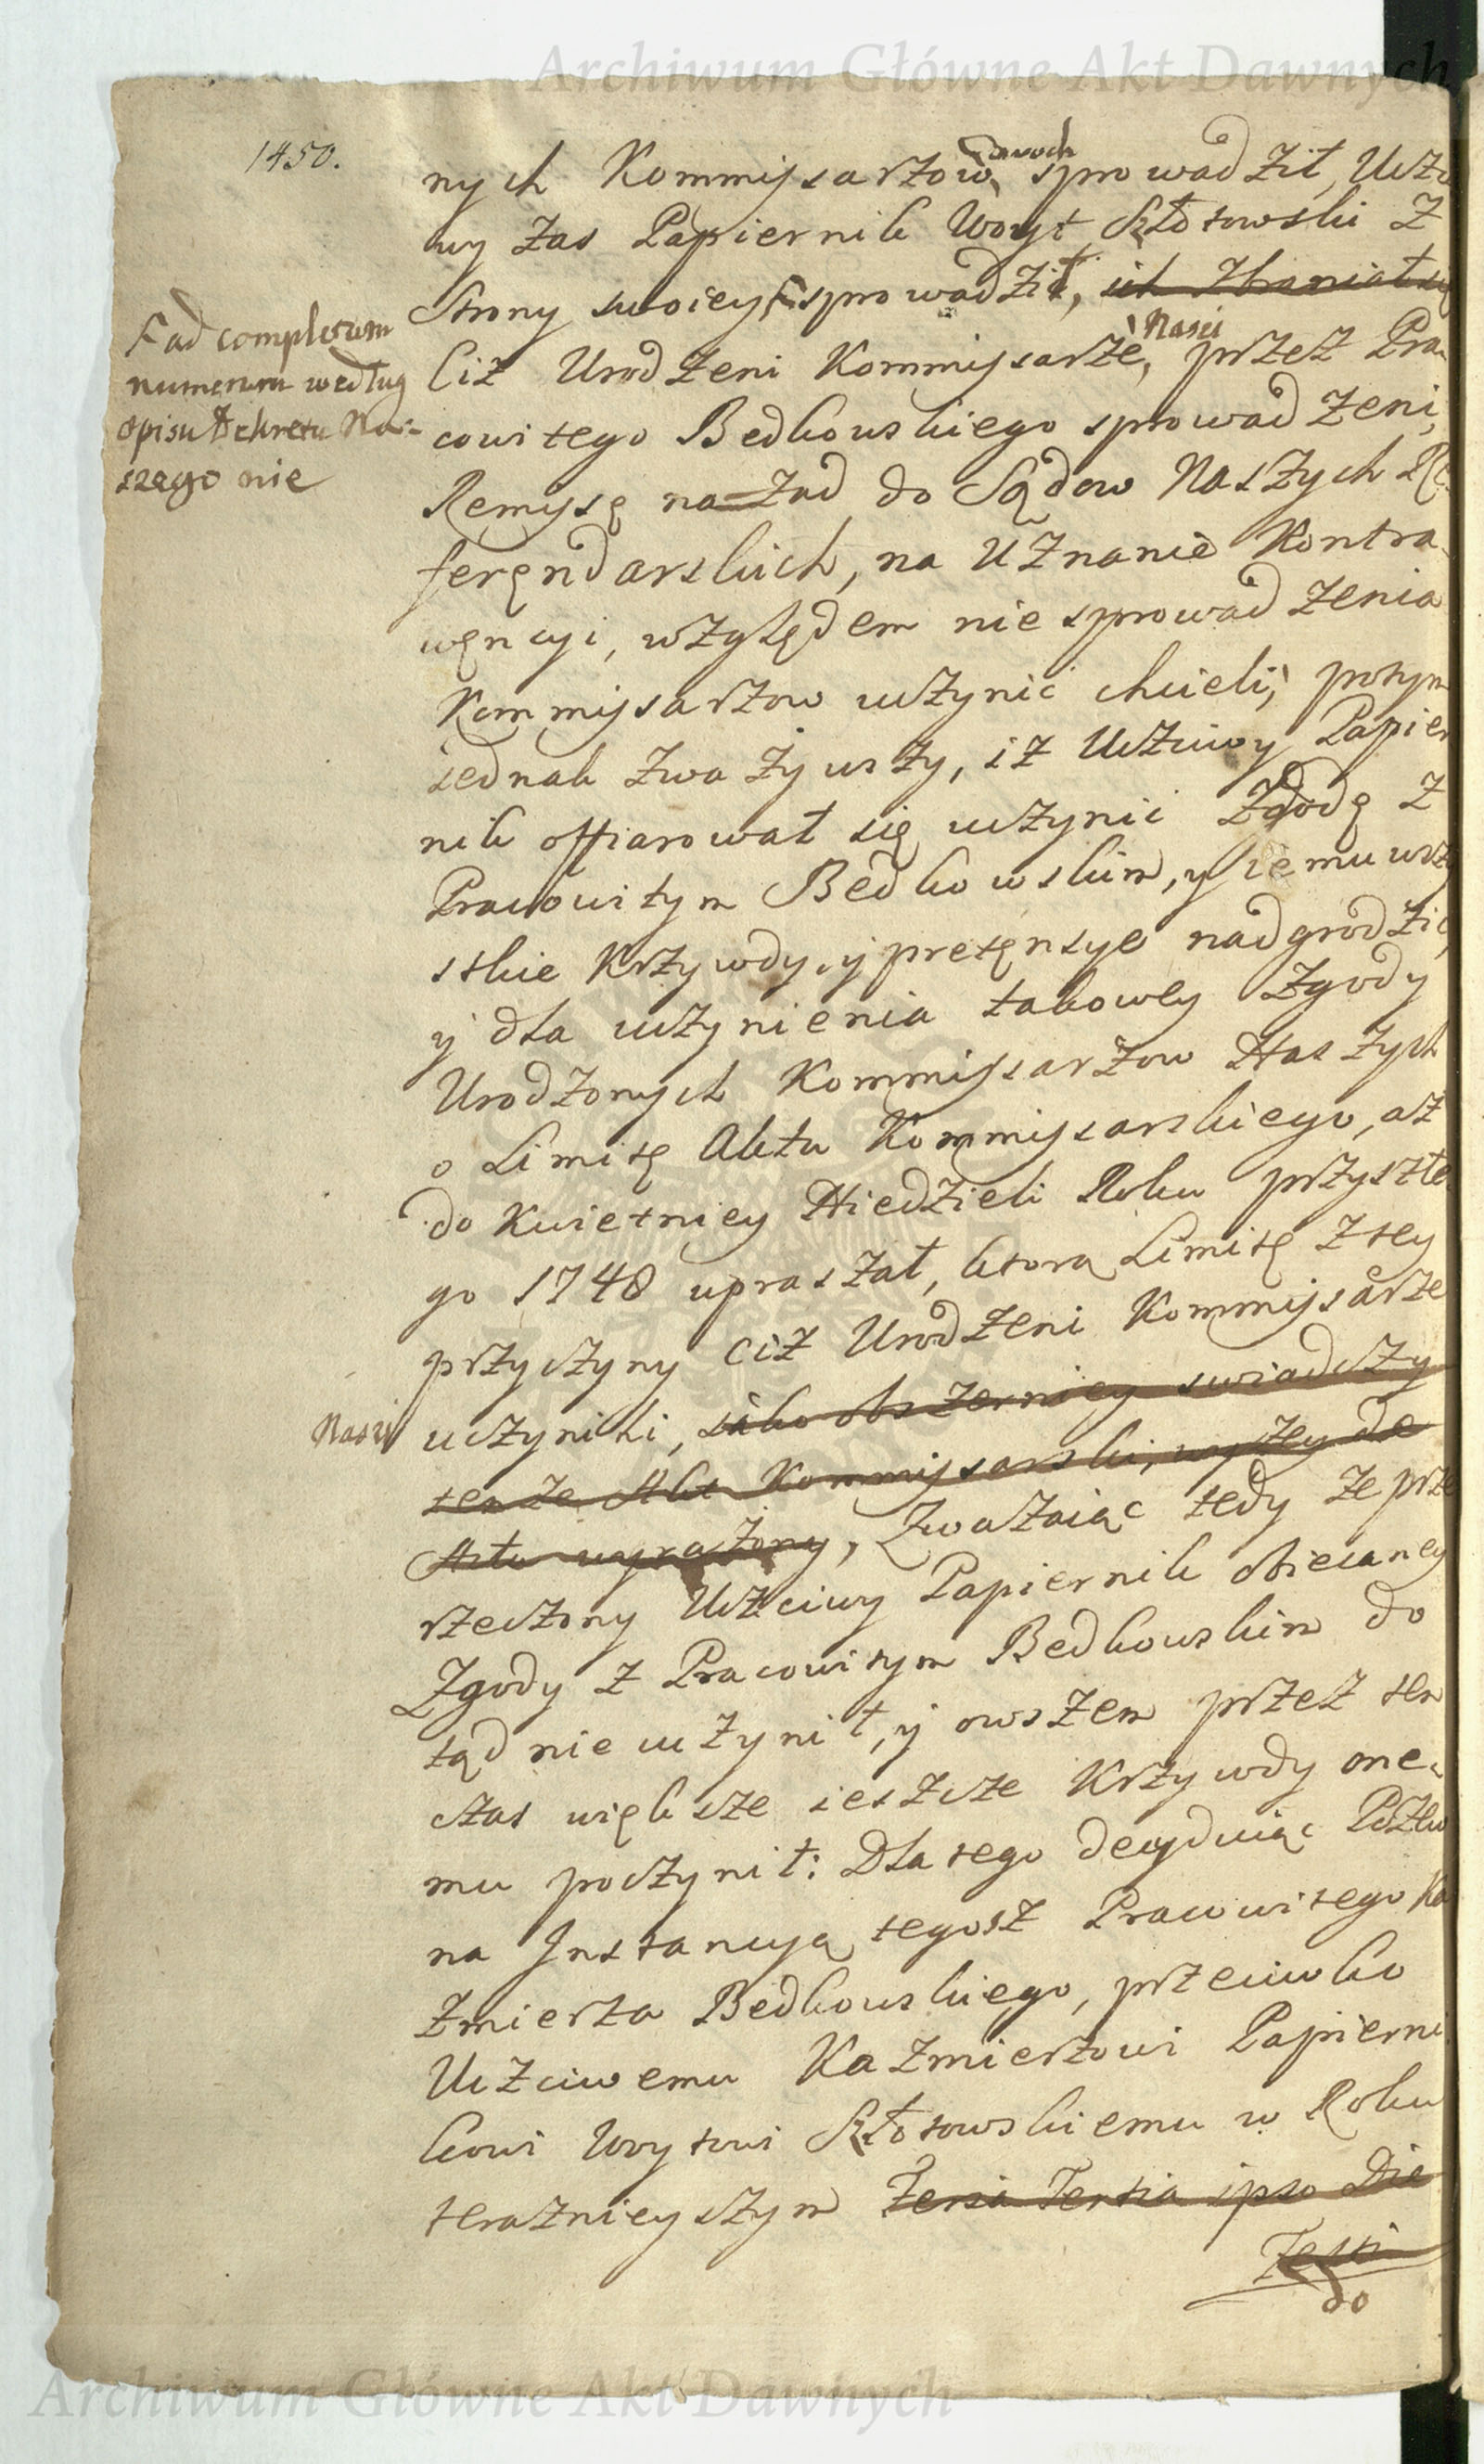 Archiwum Główne Akt Dawnych
1450.
nych Kommissarzow dwoch sprowadził, Uczci
wy zas Papiernik Woyt Kłotowski z
Strony swoiey sprowadził, ich zbraniał się
F ad completum
numerum według
opisu Dekretu Na-
szego nie
Ciż Urodzeni Kommissarze, Nasi przez Pra
cowitego Bedkowskiego sprowadzeni,
Remissę na zad do Sądow Naszych Re
ferendarskich, na Uznanie Kontra
wencyi, względem nie sprowadzenia
Kommissarzow uczynić chcieli, potym
iednak zważywszy, iż Uczciwy Papier
nik offiarował się uczynić Zgodę z
Pracowitym Bedkowskim, y iemu wszy
stkie Krzywdy, y pretensye nadgrodzić,
y dla uczynienia takowey Zgody
Urodzonych Kommissarzow Naszych
o Limitę Aktu Kommissarskiego, aż
do Kwietniey Niedzieli Roku przyszłe
go 1748 upraszał, ktorą Limitę z tey
przyczyny ciż Urodzeni Kommissarze
Nasi uczynili, iako obszerniey swiadczy
tenże Akt Kommissarski, wyżey de
Actu wyrażony, Zważaiąc tedy że prze
rzeczony Uczciwy Papiernik obiecaney
Zgody z Pracowitym Bedkowskim do
tąd nie uczynił, y owszem przez ten
czas większe ieszcze Krzywdy one
mu poczynił: Dla tego decyduiąc Pozew
na Instancyą tegosz Pracowitego Ka
zmierza Bedkowskiego, przeciwko
Uczciwemu Kazmierzowi Papierni
kowi Woytowi Kłotowskiemu w Roku
teraznieyszym Feria Tertia ipso Die
Festi
do
Archiwum Główne Akt Dawnych